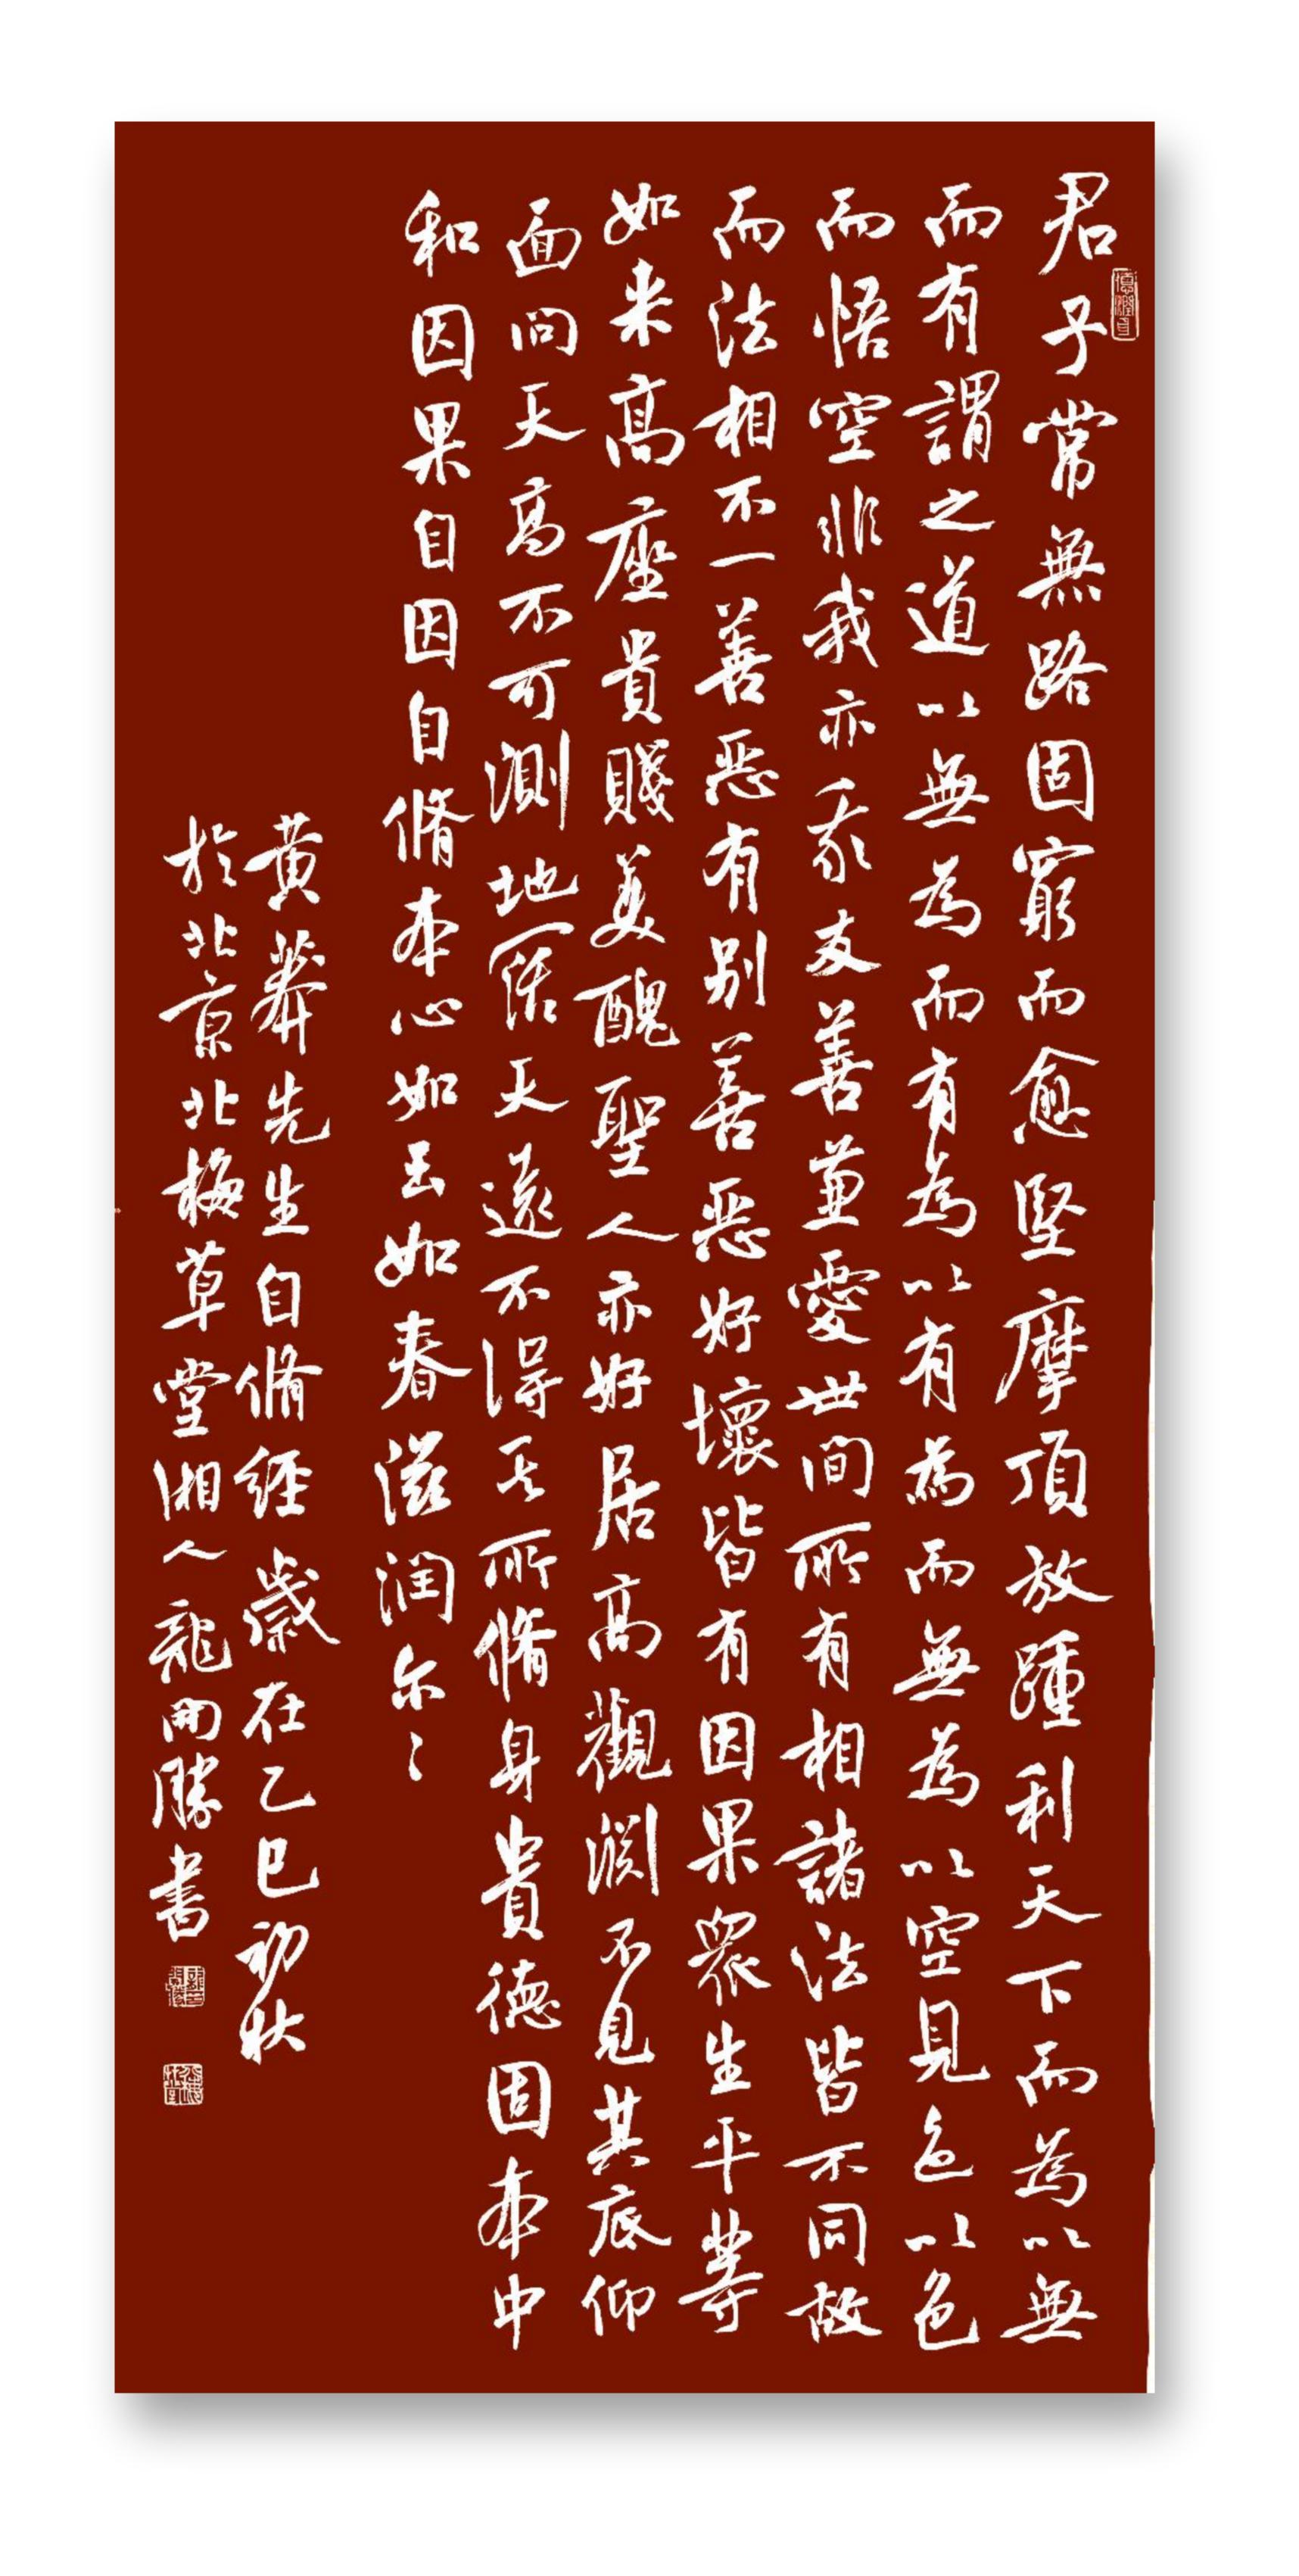 君子常無路固窮而愈堅摩頂放踵利天下而為以無
而有謂之道以無為而有為以有為而無為以空見色以色
而悟空非我亦我友善兼愛世間所有相諸法皆不同故
而法相不一善惡有别善惡好壞皆有因果眾生平等
如来高座貴賤美醜聖人亦好居高觀淵不見其底仰
面问天高不可測地阔天遠不得无所脩身貴德固本中
和因果自因自脩本心如玉如春滋润尔〻
黄莽先生自脩经歲在乙巳初秋
於北京北梅草堂湘人龍開勝書